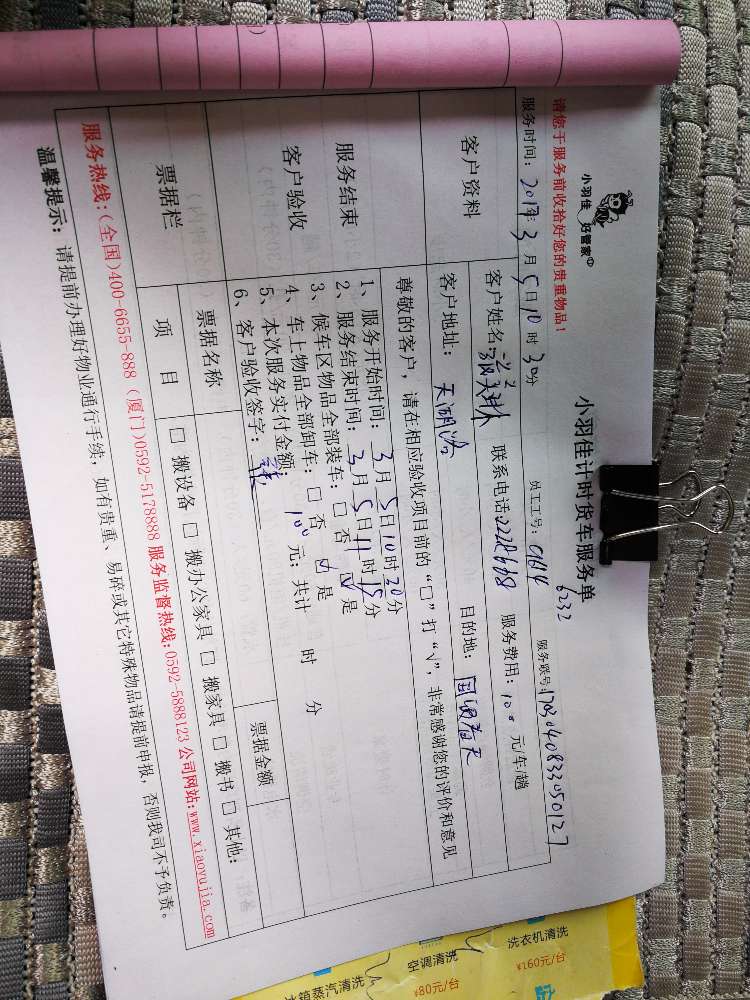 小羽佳 好管家
小羽佳计时货车服务单
6232
请您于服务前收拾好您的贵重物品！
员工工号: 0614 服务联号: 1703040833050127
服务时间: 2017年3月5日10时30分
客户资料
客户姓名: 联系电话 服务费用: 100 元/车/趟
客户地址: 天湖路 目的地: 国贸春天
服务结束
客户验收
尊敬的客户，请在相应验收项目前的“□”打“√”，非常感谢您的评价和意见
1、服务开始时间: 3月5日10时20分
2、服务结束时间: 3月5日11时15分
3、候车区物品全部装车: □ 否 ☑ 是
4、车上物品全部卸车: □ 否 ☑ 是
5、本次服务实付金额: 100 元; 共计 时 分
6、客户验收签字:
票据栏
票据名称 票据金额
项 目 □ 搬设备 □ 搬办公家具 □ 搬家具 □ 搬书 □ 其他:
服务热线:(全国)400-6655-888 (厦门)0592-5178888 服务监督热线:0592-5888123 公司网站:www.xiaoyujia.com
温馨提示: 请提前办理好物业通行手续，如有贵重、易碎或其它特殊物品请提前申报，否则我司不予负责。
洗衣机清洗
¥160元/台
空调清洗
¥80元/台
冰箱蒸汽清洗